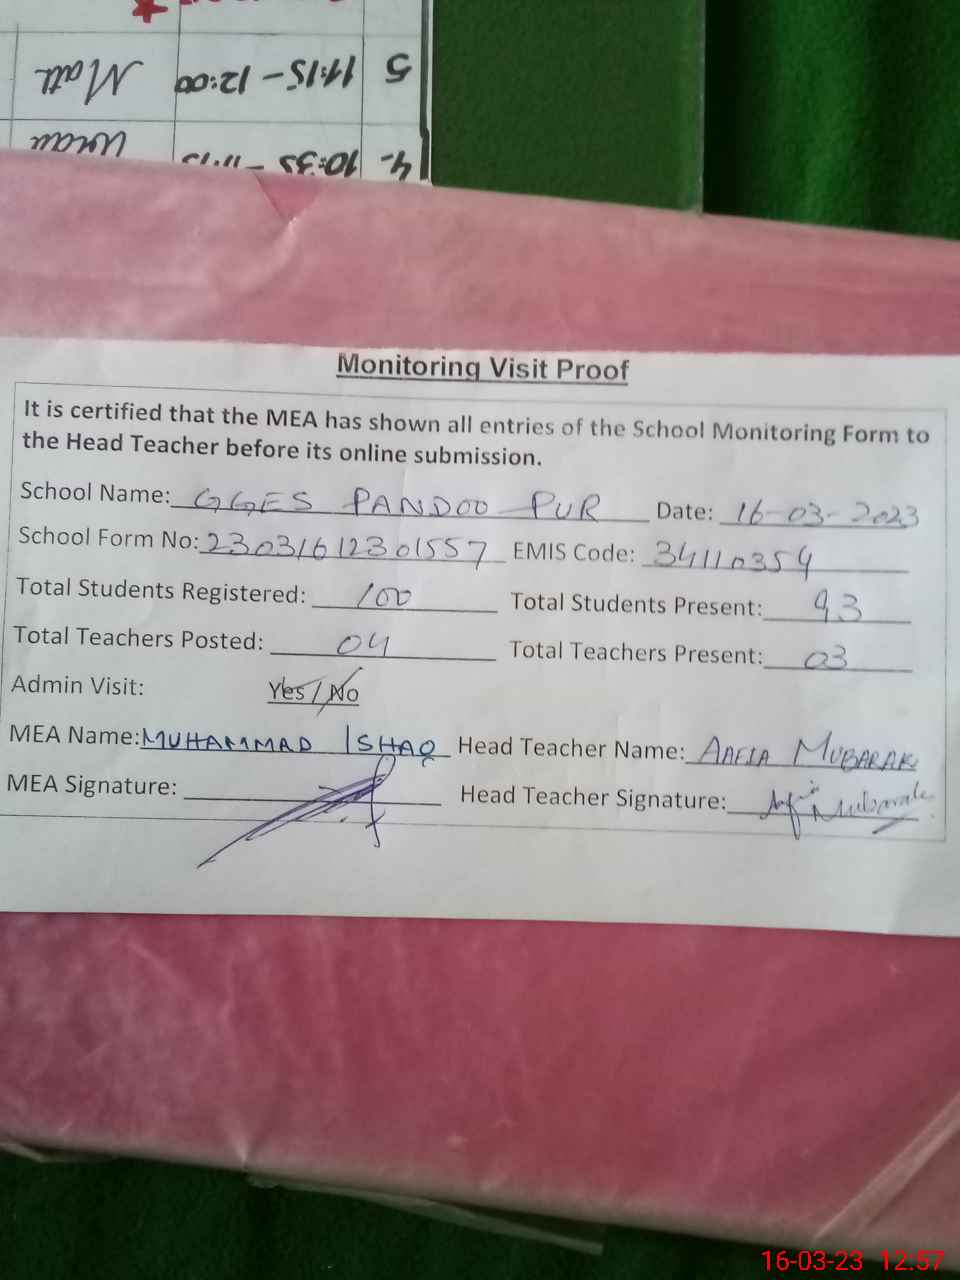 5 11:15 - 12:00 Math
4- 10:35 - 11:15
Monitoring Visit Proof
It is certified that the MEA has shown all entries of the School Monitoring Form to
the Head Teacher before its online submission.
School Name: GGES PANDOO PUR Date: 16-03-2023
School Form No: 23031612301557 EMIS Code: 34110354
Total Students Registered: 100 Total Students Present: 93
Total Teachers Posted: 04 Total Teachers Present: 03
Admin Visit: Yes / No
MEA Name: MUHAMMAD ISHAQ Head Teacher Name: AAFIA MUBARAK
MEA Signature: Head Teacher Signature: Aafia Mubarak
16-03-23 12:57